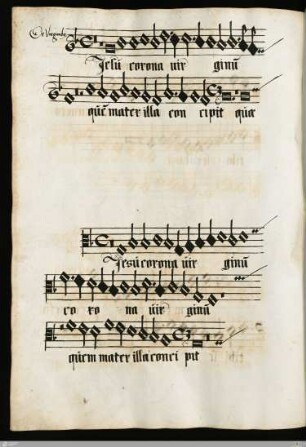 Jesu corona vir ginū
quē mater illa con cipit que
Jesu corona vir ginū
co ro na vir ginū
quem mater illa conci pit